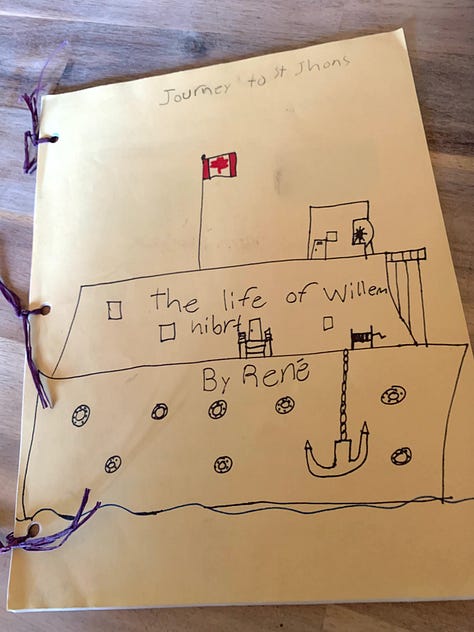 Journey to St Jhons
the life of Willem
nibrt
By René